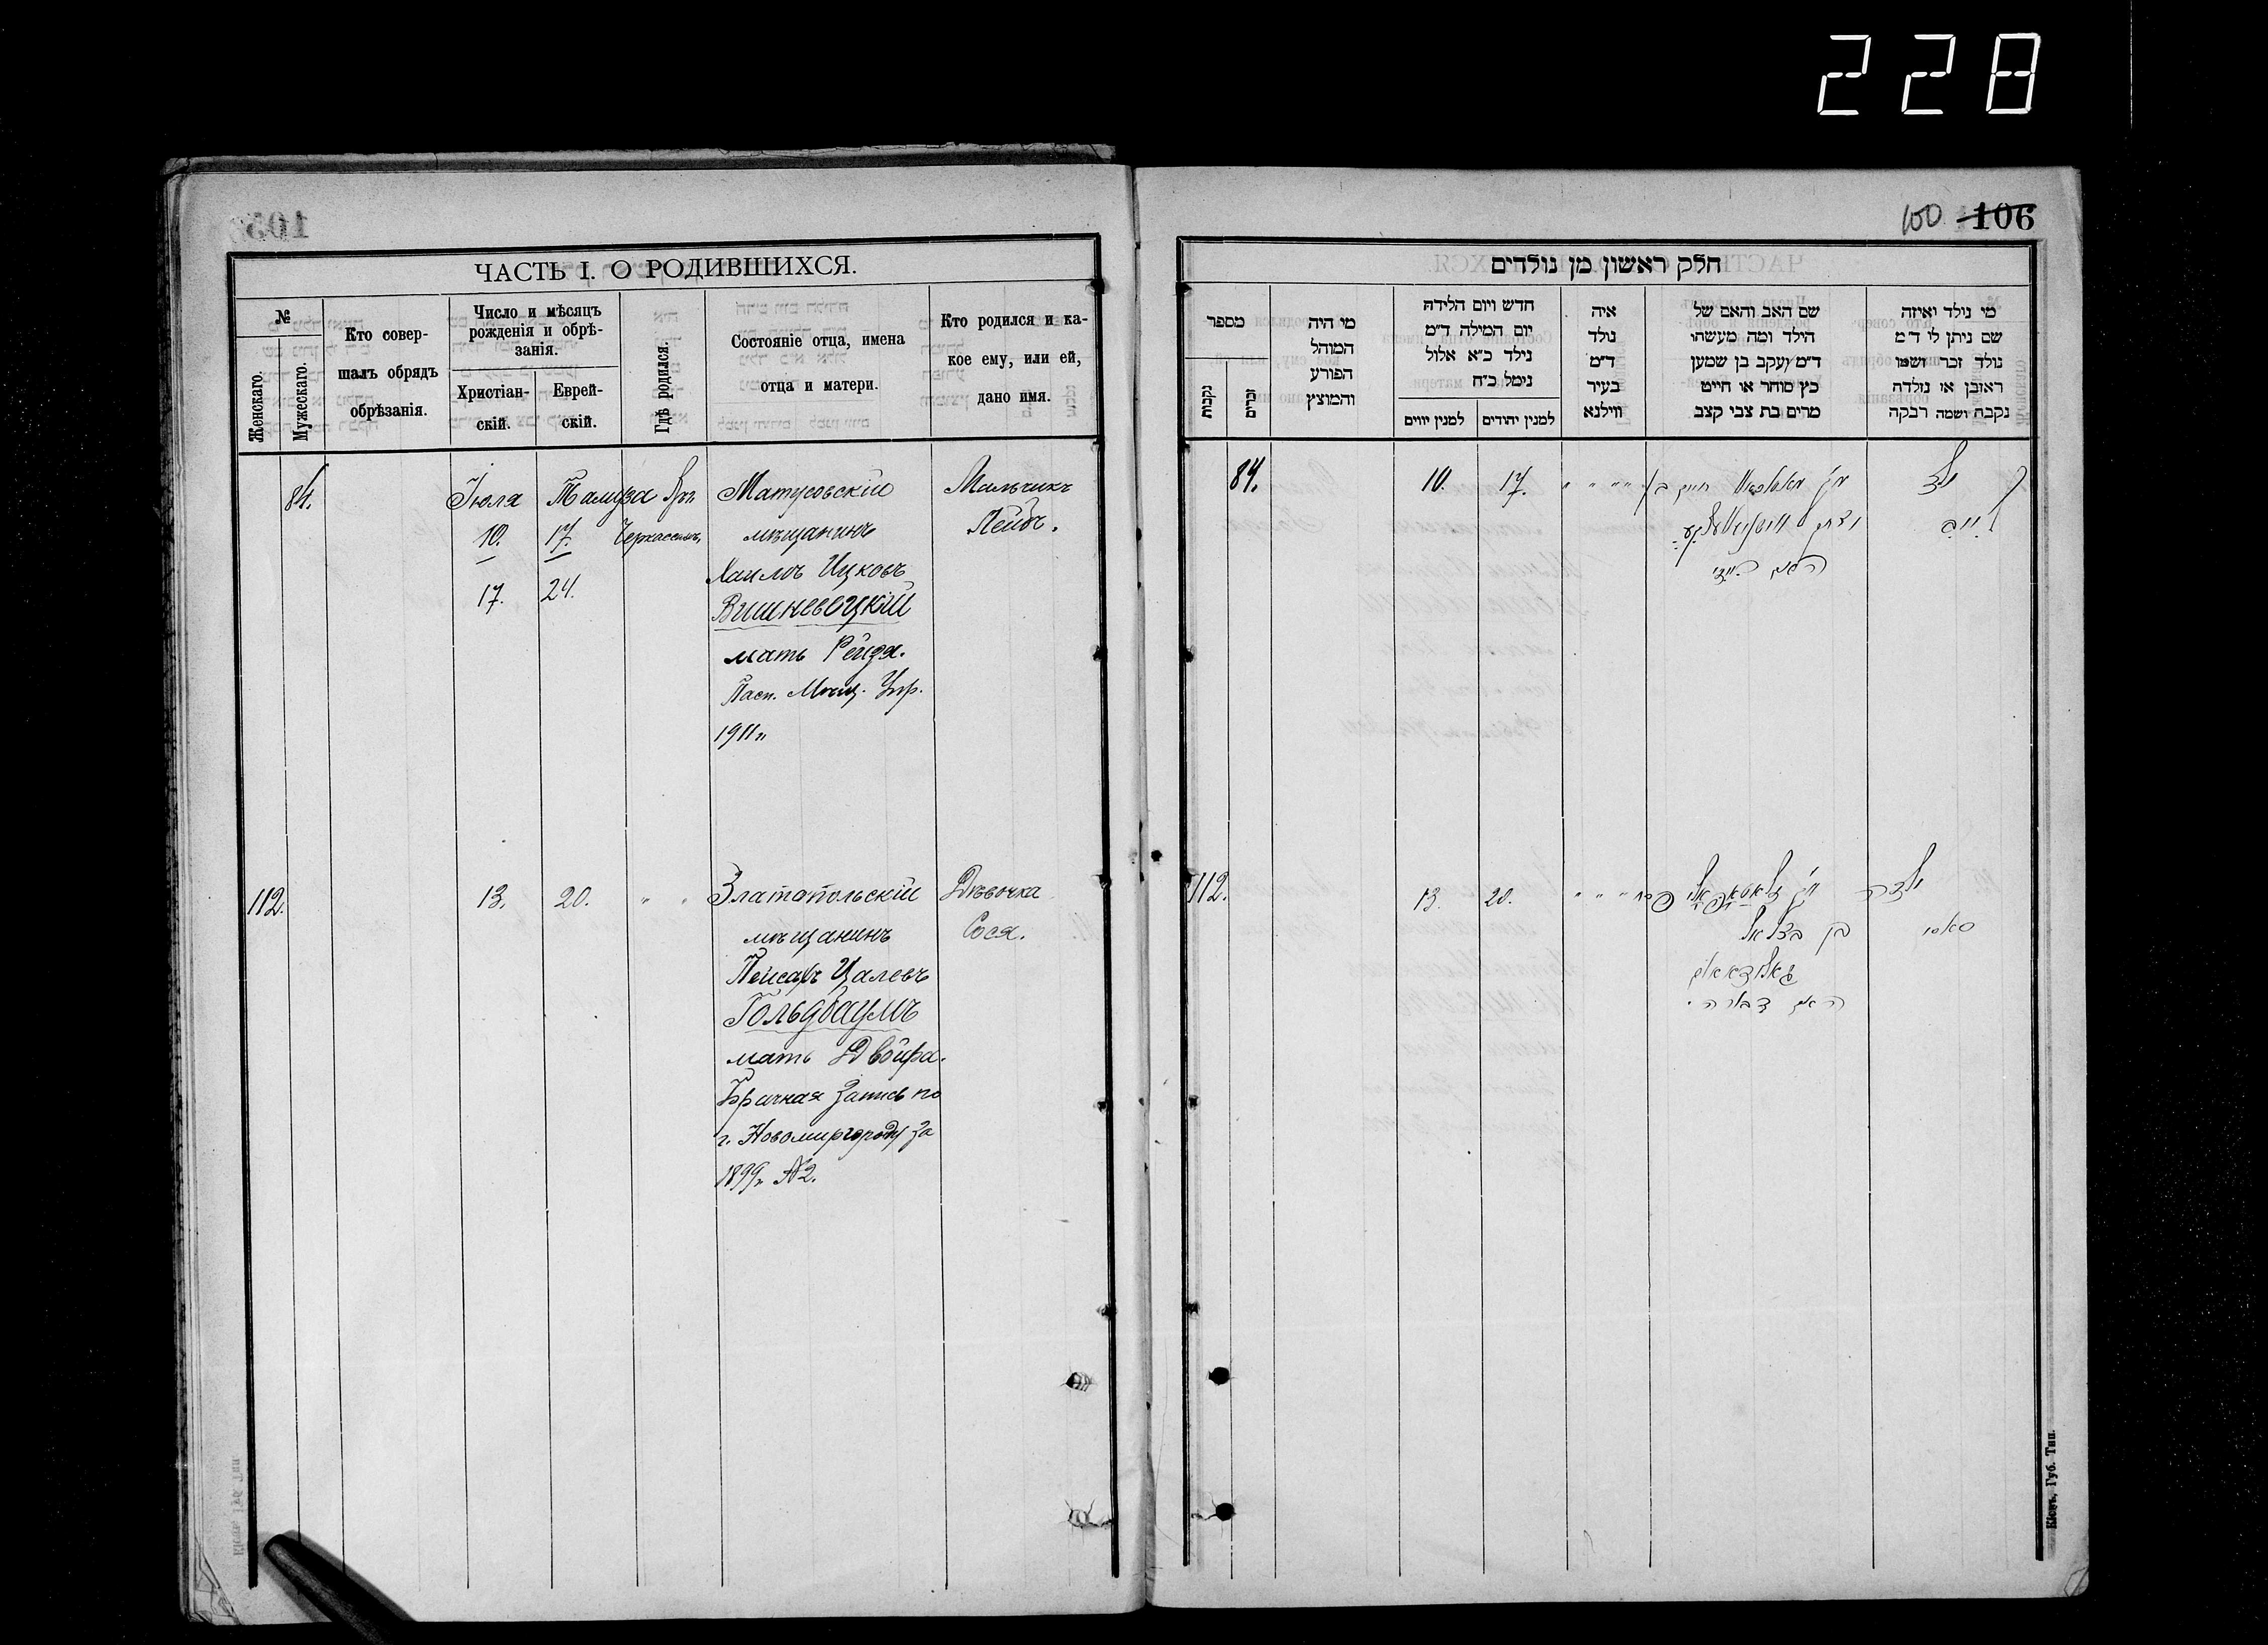 228
ЧАСТЬ I. О РОДИВШИХСЯ.
№
Женскаго.
Мужескаго.
Кто совер-
шалъ обрядъ
обрѣзанія.
Число и мѣсяцъ
рожденія и обрѣ-
занія.
Христіан-
скій.
Еврей-
скій.
Гдѣ родился.
Состояніе отца, имена
отца и матери.
Кто родился и ка-
кое ему, или ей,
дано имя.
84.
Іюля
10.
17.
Тамуза
17.
24.
Черкассахъ
Матусовскій
мѣщанинъ
Хаимъ Ицковъ
Вишневецкій
мать Рейзя.
Пасп. Мѣщ. Упр.
1911 г.
Мальчикъ
Лейбъ.
112.
13.
20.
" "
Златопольскій
мѣщанинъ
Пейсахъ Цалевъ
Гольдбаумъ
мать Двойра.
Брачная запись по
г. Новомиргороду за
1899 г. №2.
Дѣвочка
Сося.
100 106
חלק ראשון מן נולדים
מספר
נקבות
זכרים
מי היה
המוהל
הפורע
והמוצץ
חדש ויום הלידה
יום המילה ד״מ
נילד כ״א אלול
נימל כ״ח
למנין יווים
למנין יהודים
איה
נולד
ד״מ
בעיר
ווילנא
שם האב והאם של
הילד ומה מעשהו
ד״מ יעקב בן שמעון
כץ סוחר או חייט
מרים בת צבי קצב
מי נולד ואיזה
שם ניתן לי ד״מ
נולד זכר ושמו
ראובן או נולדה
נקבה ושמה רבקה
84.
10.
17.
" " " "
ילד
לייב
112.
13.
20.
" " " "
פסח
בן בצלאל
האם דבורה
ילדה
סאסי
Кіевъ, Губ. Тип.